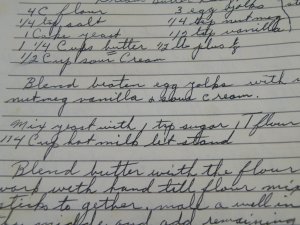 4 C flour 3 egg yolks
1/4 tsp salt 1/4 tsp nutmeg
1 Cake yeast 1/2 tsp vanilla
1 1/4 Cups butter 1/2 lb plus
1/2 Cup sour Cream
Blend beaten egg yolks with
nutmeg vanilla & sour cream.
Mix yeast with 1 tsp sugar 1 T flour
1/4 Cup hot milk let stand
Blend butter with the flour
work with hand till flour mix
sticks to gether, make a well in
add remaining